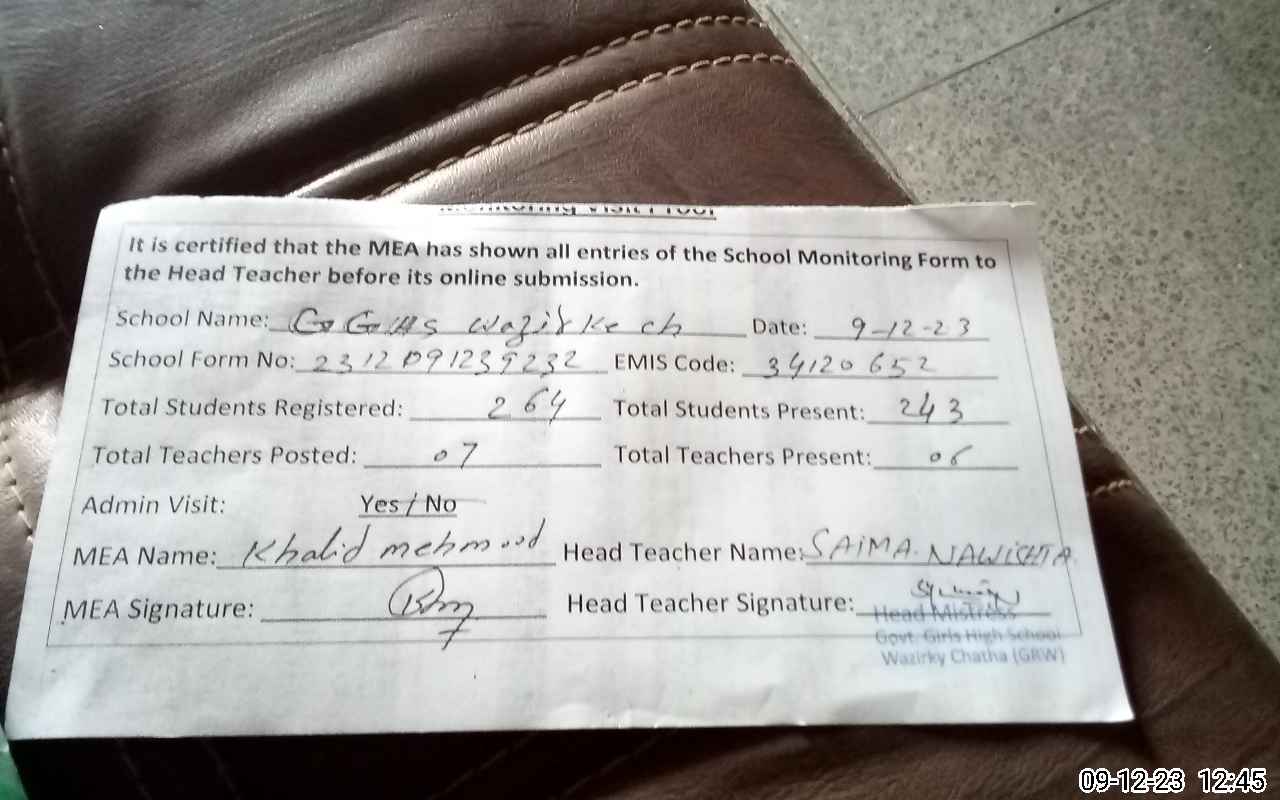 Monitoring Visit Proof
It is certified that the MEA has shown all entries of the School Monitoring Form to
the Head Teacher before its online submission.
School Name: GGHS Wazirke ch Date: 9-12-23
School Form No: 2312091239232 EMIS Code: 34120652
Total Students Registered: 264 Total Students Present: 243
Total Teachers Posted: 07 Total Teachers Present: 06
Admin Visit: Yes / No
MEA Name: Khalid mehmood Head Teacher Name: SAIMA. NAWISHTA
MEA Signature: Head Teacher Signature:
Head Mistress
Govt. Girls High School
Wazirky Chatha (GRW)
09-12-23 12:45